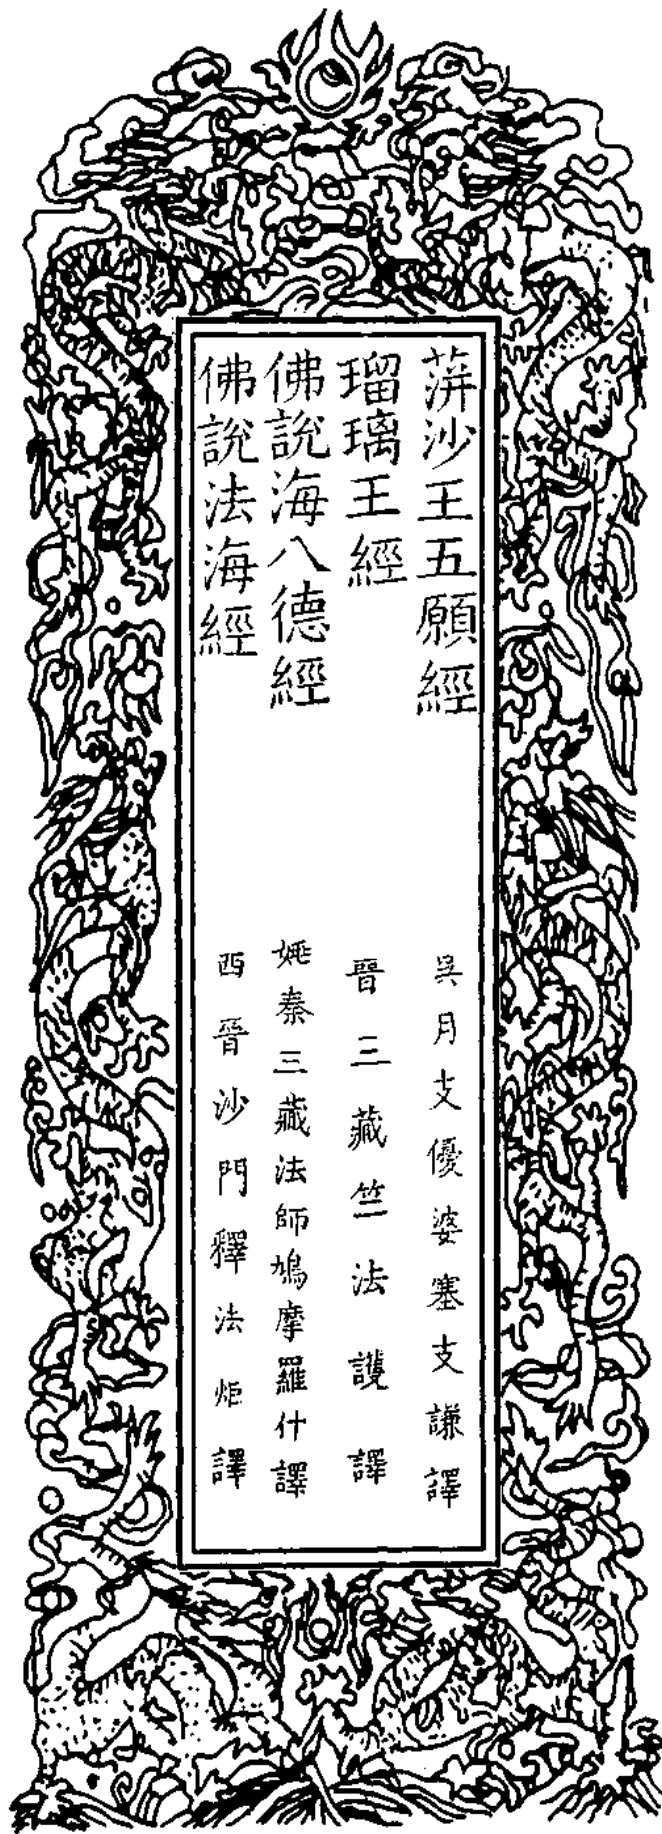 蓱沙王五願經
吳月支優婆塞支謙譯
瑠璃王經
晉三藏竺法護譯
佛說海八德經
姚秦三藏法師鳩摩羅什譯
佛說法海經
西晉沙門釋法炬譯